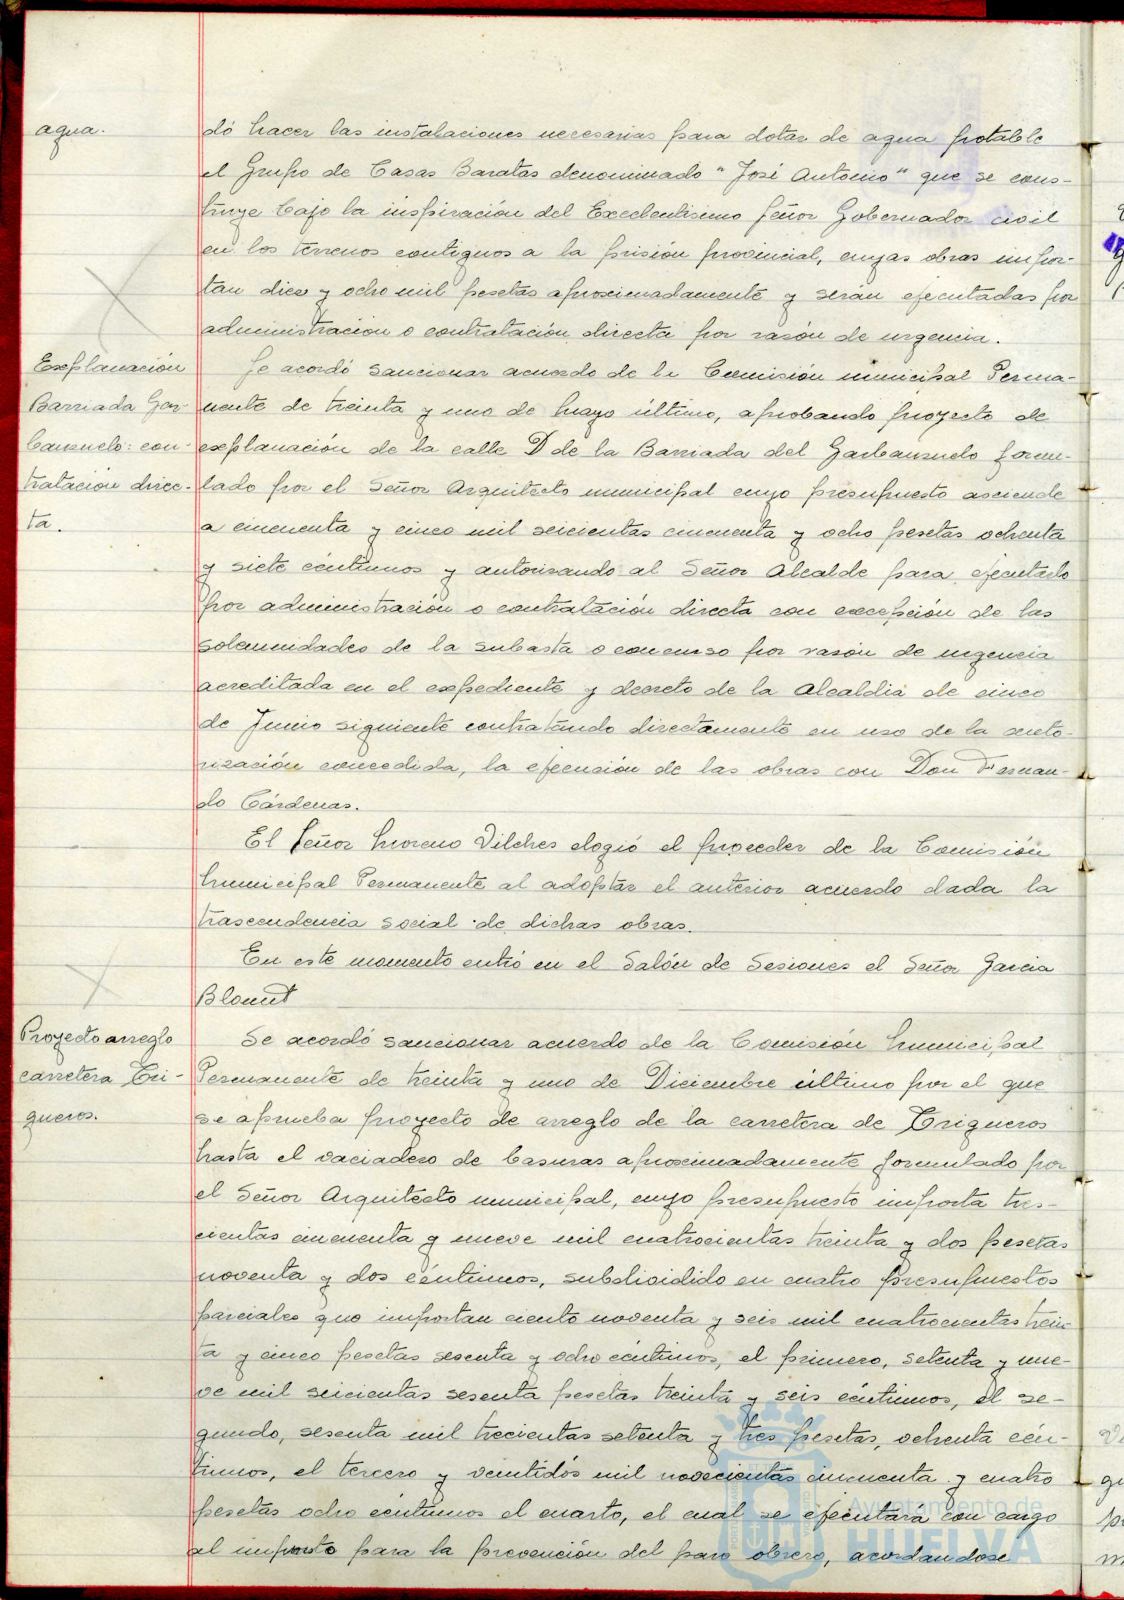 agua.
dó hacer las instalaciones necesarias para dotar de agua potable
el Grupo de Casas Baratas denominado "José Antonio" que se cons-
truye bajo la inspiración del Excelentísimo Señor Gobernador civil
en los terrenos contiguos a la prisión provincial, cuyas obras impor-
tan diez y ocho mil pesetas aproximadamente y serán ejecutadas por
administración o contratación directa por razón de urgencia.
Explanación
Barriada Gar-
banzuelo: con-
tratación direc-
ta.
Se acordó sancionar acuerdo de la Comisión municipal Perma-
nente de treinta y uno de Mayo último, aprobando proyecto de
explanación de la calle D de la Barriada del Garbanzuelo formu-
lado por el Señor Arquitecto municipal cuyo presupuesto asciende
a cincuenta y cinco mil seicientas cincuenta y ocho pesetas ochenta
y siete céntimos y autorizando al Señor Alcalde para ejecutarlo
por administración o contratación directa con excepción de las
solemnidades de la subasta o concurso por razón de urgencia
acreditada en el expediente y decreto de la Alcaldia de cinco
de Junio siguiente contratando directamente en uso de la auto-
rización concedida, la ejecución de las obras con Don Fernan-
do Cárdenas.
El Señor Moreno Vilches elogió el proceder de la Comisión
Municipal Permanente al adoptar el anterior acuerdo dada la
trascendencia social de dichas obras.
En este momento entró en el Salón de Sesiones el Señor Garcia
Blomut
Proyecto arreglo
carretera Tri-
gueros.
Se acordó sancionar acuerdo de la Comisión Municipal
Permanente de treinta y uno de Diciembre último por el que
se aprueba proyecto de arreglo de la carretera de Trigueros
hasta el vaciadero de basuras aproximadamente formulado por
el Señor Arquitecto municipal, cuyo presupuesto importa tres-
cientas cincuenta y nueve mil cuatrocientas treinta y dos pesetas
noventa y dos céntimos, subdividido en cuatro presupuestos
parciales que importan ciento noventa y seis mil cuatrocientas trein-
ta y cinco pesetas sesenta y ocho céntimos, el primero, setenta y nue-
ve mil seicientas sesenta pesetas treinta y seis céntimos, el se-
gundo, sesenta mil trecientas setenta y tres pesetas, ochenta cén-
timos, el tercero y veintidós mil novecientas cincuenta y cuatro
pesetas ocho céntimos el cuarto, el cual se ejecutará con cargo
al importe para la prevención del paro obrero, acordandose
Ayuntamiento de
HUELVA